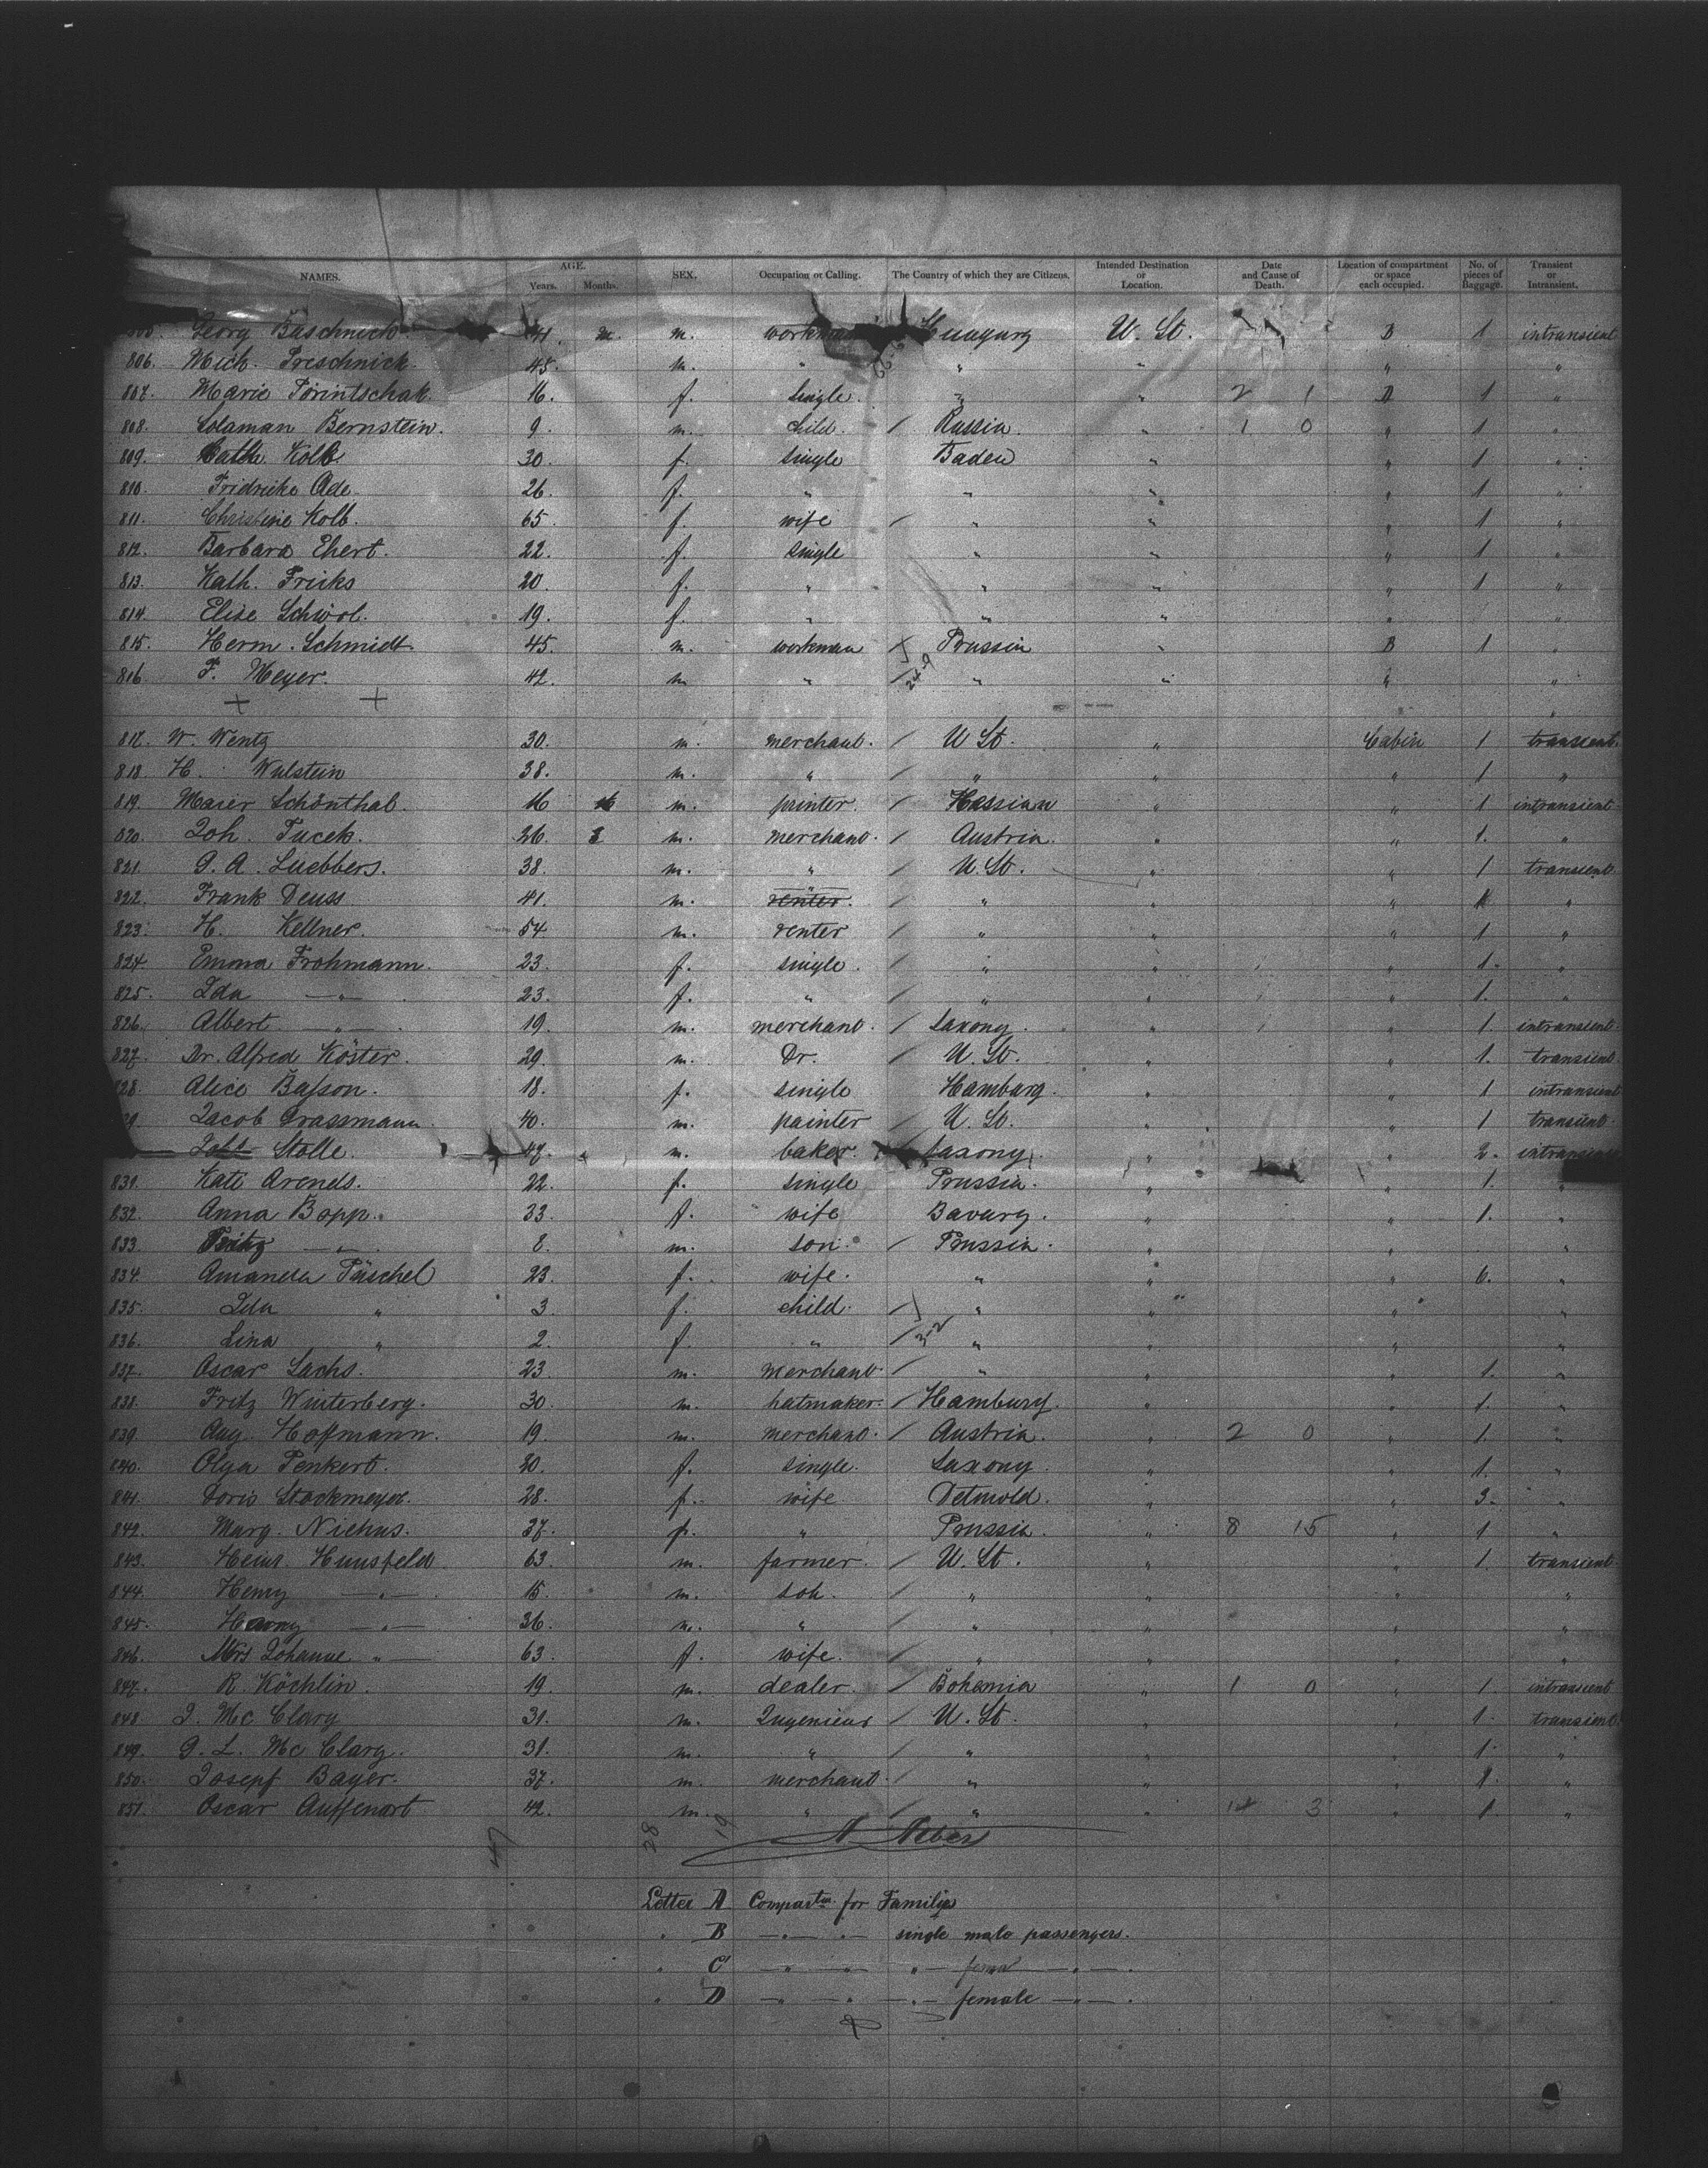 NAMES. AGE. Years. Months. SEX. Occupation or Calling. The Country of which they are Citizens. Intended Destination or Location. Date and Cause of Death. Location of compartment or space each occupied. No. of pieces of Baggage. Transient or Intransient.
Georg 41. m. m. Hungary U. St. B 1 intransient
806. Mich. Preschnick. 45. m. " " " " "
807. Marie 16. f. single. " " 2 1 D 1 "
808. Solaman Bernstein. 9. m. child. / Russia. " 1 0 " 1 "
809. Cath. Kolb 30. f. single Baden " " 1 "
810. Fridricke Ade. 26. f. " " " " 1 "
811. Christine Kolb. 65. f. wife / " " " 1 "
812. Barbara Ehert. 22. f. single " " " 1 "
813. Kath. Fricks 20 f. " " " " 1 "
814. Elise 19. f. " " " " "
815. Herm. Schmidt. 45. m. workman / Prussia " B 1 "
816. F. Meyer. 42. m " / 24-9 " " " "
+ +
817. W. Wentz 30. m. merchant. / U St. " Cabin 1 transient
818. H. Wulstein 38. m. " / " " " 1 "
819. Maier Schönthal. 16 m. printer. / Hessian " " 1 intransient
820. Joh. Tucek. 26. m. merchant. / Austria. " " 1. "
821. G. A. Luebbers. 38. m. " / U. St. " " 1 transient
822. Frank Deuss 41. m. renter. / " " " "
823. H. Kellner. 54 m. renter / " " " 1 "
824. Emma Frohmann. 23. f. single. / " " " 1. "
825. Ida —"— 23. f. " / " " " 1. "
826. Albert —"— 19. m. merchant. / Saxony. " " 1. intransient.
827. Dr. Alfred Köster. 29. m. Dr. / U. St. " " 1. transient
828. Alice 18. f. single Hamburg. " " 1 intransient
Jacob Grassmann. 40. m. painter / U. St. " " 1 transient.
Stolle. 47. m. baker. Saxony. " " 2. intransient
831. Kati Arends. 22. f. single Prussia. " " 1. "
832. Anna Bopp. 33. f. wife Bavarg. " " 1. "
833. Fritz —"— 8. m. son. / Prussia. " " "
834. Amanda Püschel 23. f. wife. " " " 6. "
835. Ida " 3. f. child. / " " " "
836. Lina " 2. f. " / 3-2 " " " "
837. Oscar Sachs. 23. m. merchant. / " " " 1. "
838. Fritz Winterberg. 30. m. hatmaker. / Hamburg. " " 1. "
839. Aug. Hofmann. 19. m. merchant. / Austria. " 2 0 " 1. "
840. Olga Penkert. 20. f. single. Saxony. " " 1. "
841. Doris Stockmeyer. 28. f. wife Detmold. " " 3. "
842. Marg. Niehus. 37. f. " Prussia. " 8 15 " 1 "
843. Heinr. Hunsfeld 63. m. farmer. / U. St. " " 1. transient
844. Henry —"— 15. m. son. / " " " "
845. —"— 36. m. " / " " " "
846. Mrs Johanne "— 63. f. wife. / " " " "
847. R. Köchlin. 19. m. dealer. / Bohemia " 1 0 " 1. intransient
848. J. Mc Clary 31. m. Ingenieur / U. St. " " 1. transient
849. G. L. Mc Clary. 31. m. " / " " " 1. "
850. Josepf Bayer. 37. m. merchant. / " " " 1. "
851. Oscar Auffenort 42. m. " / " " 3 " 1 "
47 28 19
Letter A Compartm. for Families
" B —"— —"— single male passengers.
" C —"— —"— "— —"— .
" D —"— —"— —"— female —"— .